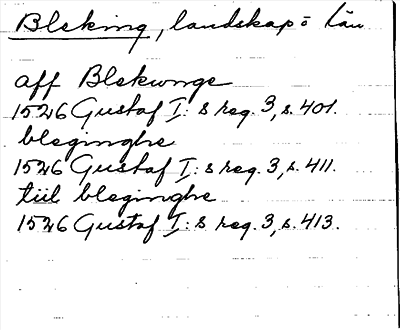 Bleking, landskap o län
aff Blekunge
1526 Gustaf I: s reg. 3, s. 401.
bleginghe
1526 Gustaf I: s reg. 3, s. 411.
tiil bleginghe
1526 Gustaf I: s reg. 3, s. 413.